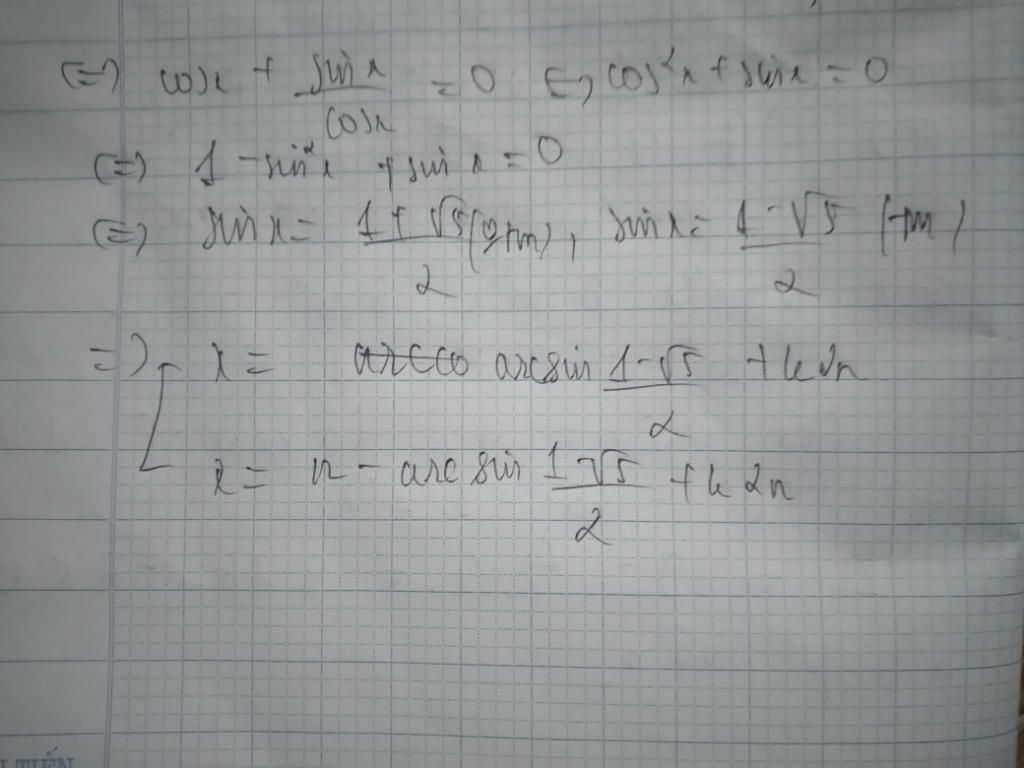 (=) cosx + sinx/cosx = 0 (=) cos²x + sinx = 0
(=) 1 - sin²x + sinx = 0
(=) sinx = (1+√5)/2 (), sinx = (1-√5)/2 (tm)
=) x = arcsin (1-√5)/2 + k2π
x = π - arcsin (1-√5)/2 + k2π
TIẾN